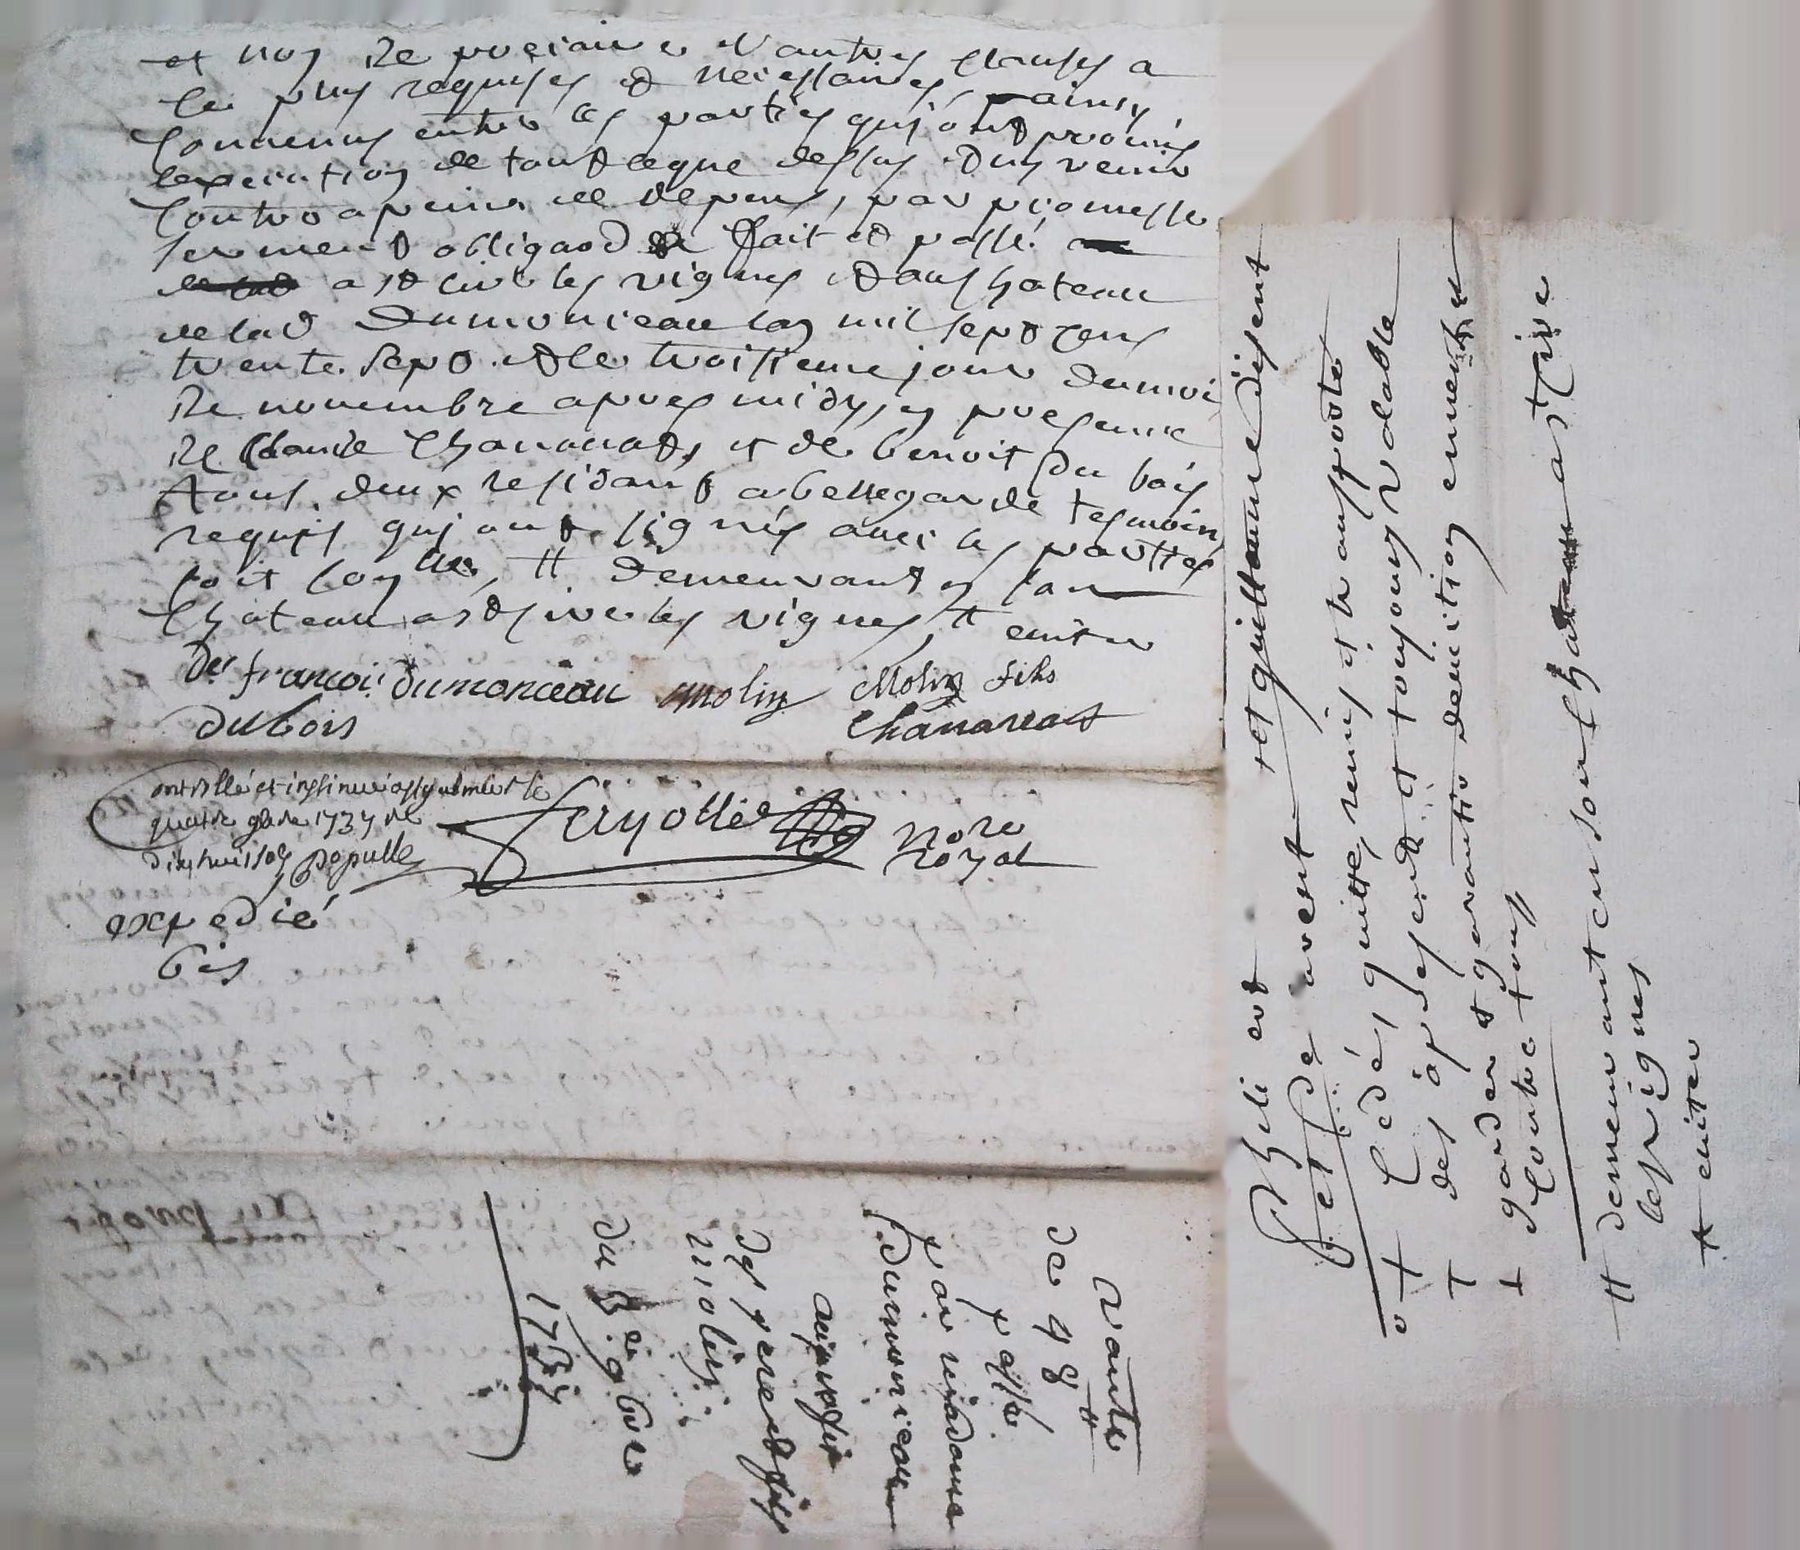 et non de precaire et autres clauses a
ce plus requises et necessaires, ainsy
convenus entre les parties qui ont promis
lexecution de tout ceque dessus et ny venir
contre a peine de depens, par promesse
serment obligaod fait et passé
a st cire les vignes et au chateau
de lad dumonceau lan mil sept cens
trente sept et le troisieme jour du moi
de novembre apres midy, en presence
de Claude Chanavat, et de benoit du bois
tous deux residant a bellegarde tesmoins
requis qui ont signés avec les parties
soit con lle, # demeurant en son
chateau a st sire les vignes, # enter
Des francois dumonceau Molin Molin fils
dubois Chanavat
Controllé et insinué a st galmier le
quatre 9bre 1737 Rc
dix huit sols Populle
Fayolle Nore
Royal
expedié
bis
vante
de 48 #
passé
par madame
Dumonceau
au profit
des pere et fils
molin
du 3e 9bre
1737
et quittance disent
et de avent
Cedé, quitté, remis et transporté
des a present et toujours valable
garder et garantir deviction
contre tous
# demeurant en son chateau a st sire
les vignes
enter